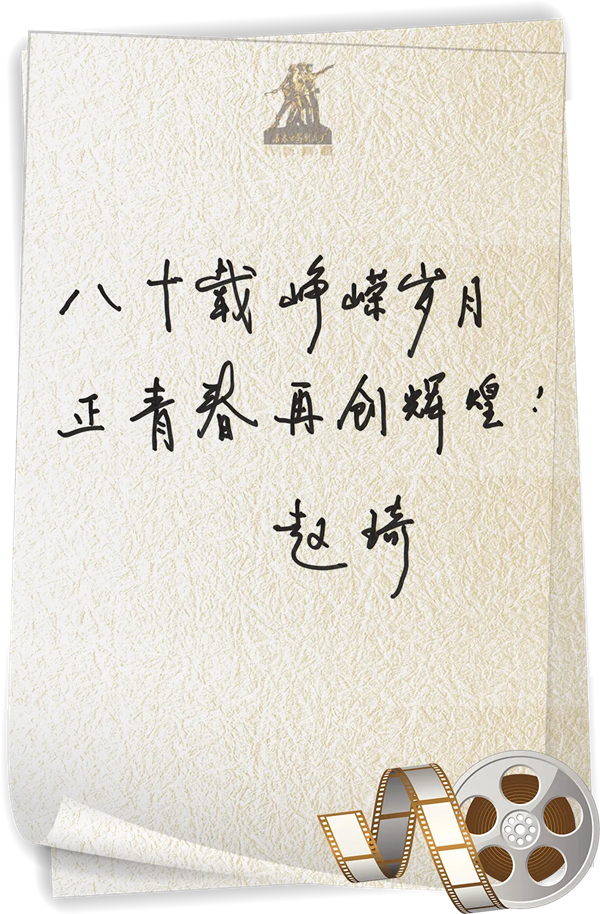 八十载峥嵘岁月
正青春再创辉煌！
赵琦